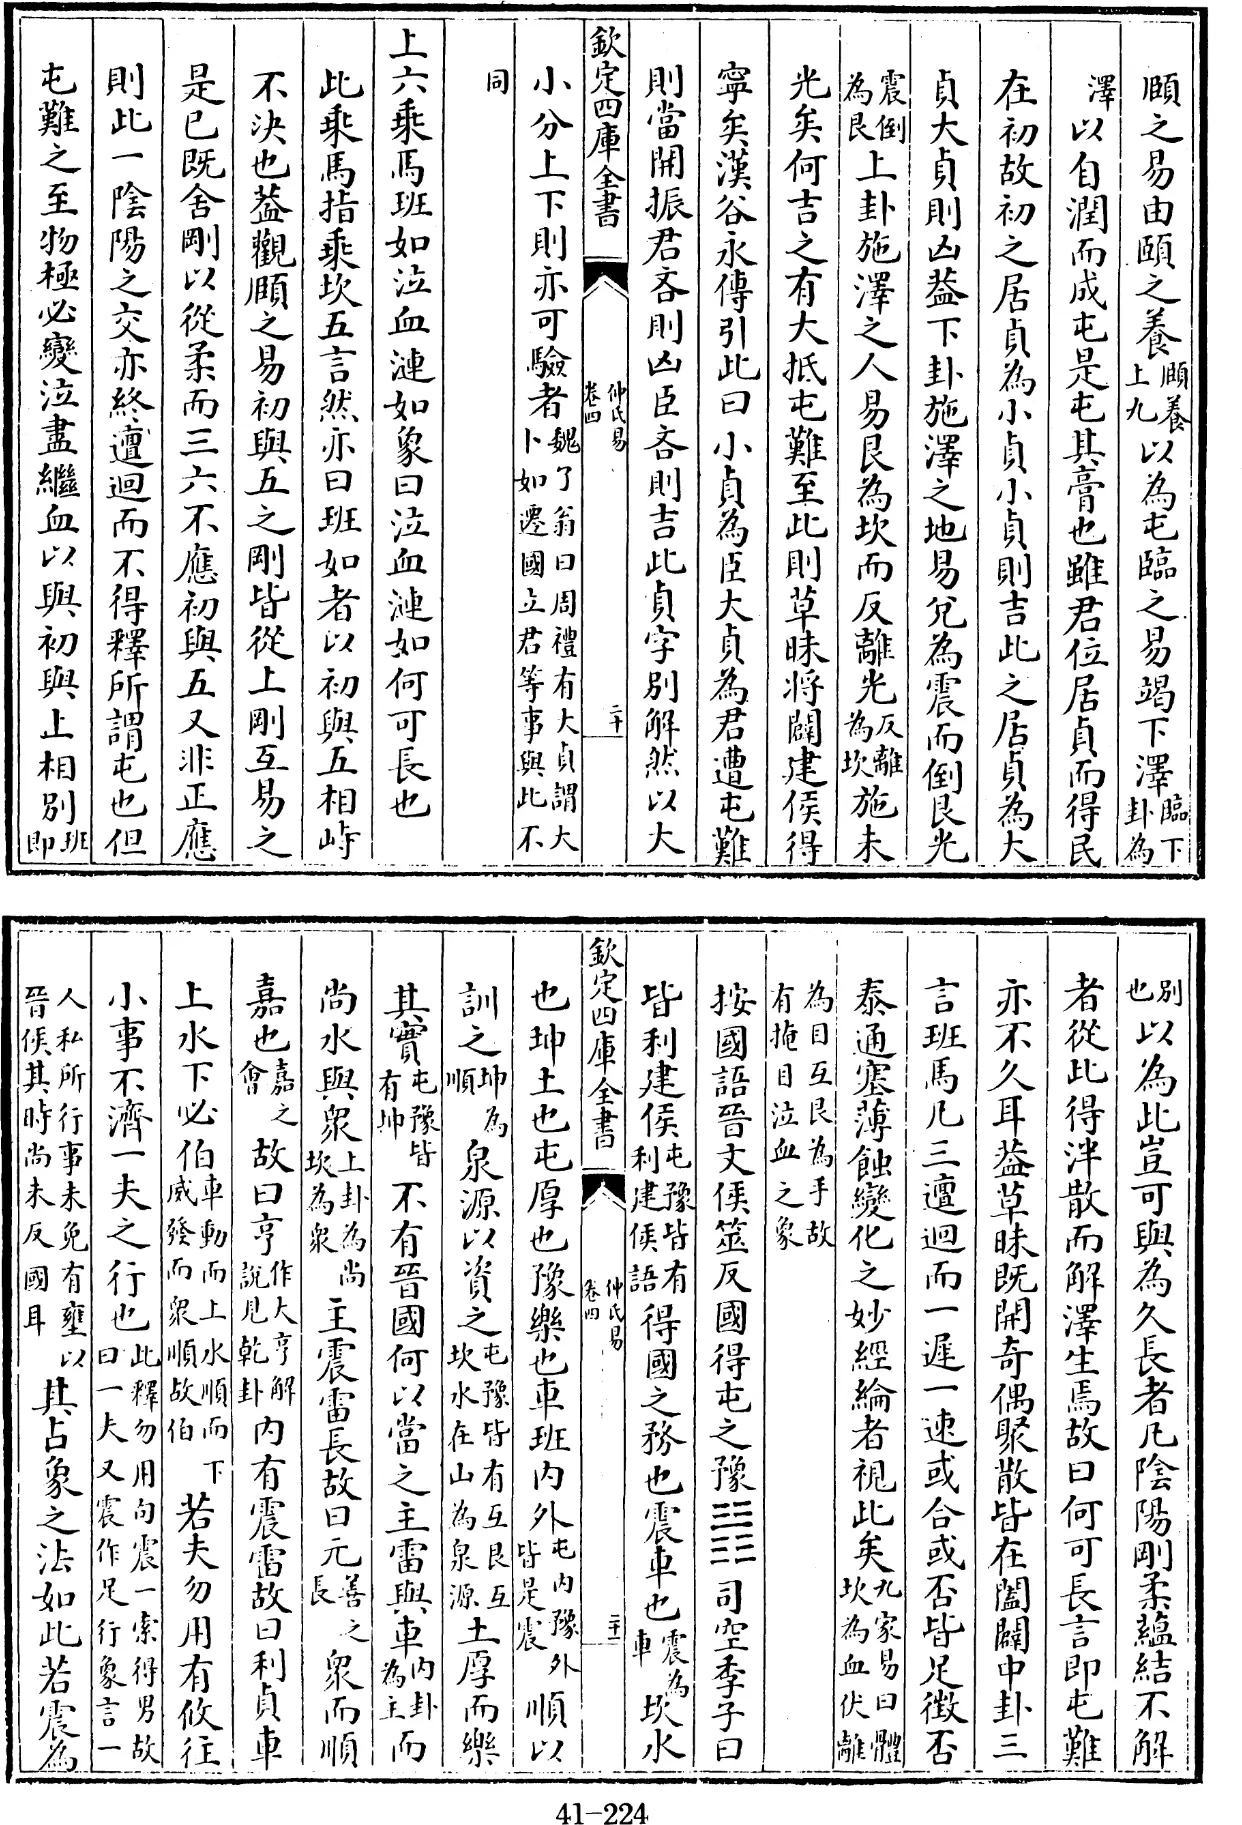 頤之易由頤之養頤養上九以為屯臨之易竭下澤臨下卦為
澤以自潤而成屯是屯其膏也雖君位居貞而得民
在初故初之居貞為小貞小貞則吉此之居貞為大
貞大貞則凶葢下卦施澤之地易兌為震而倒艮光
震倒為艮上卦施澤之人易艮為坎而反離光反離為坎施未
光矣何吉之有大抵屯難至此則草昧將闢建侯得
寧矣漢谷永傳引此曰小貞為臣大貞為君遭屯難
則當開振君吝則凶臣吝則吉此貞字別解然以大
欽定四庫全書
仲氏易
卷四
二十
小分上下則亦可驗者魏了翁曰周禮有大貞謂大卜如遷國立君等事與此不
同
上六乘馬班如泣血漣如象曰泣血漣如何可長也
此乘馬指乘坎五言然亦曰班如者以初與五相峙
不決也葢觀頤之易初與五之剛皆從上剛互易之
是已既舍剛以從柔而三六不應初與五又非正應
則此一陰陽之交亦終邅迴而不得釋所謂屯也但
屯難之至物極必變泣盡繼血以與初與上相別班即
別也以為此豈可與為久長者凡陰陽剛柔蘊結不解
者從此得泮散而解澤生焉故曰何可長言即屯難
亦不久耳葢草昧既開奇偶聚散皆在闔闢中卦三
言班馬凡三邅迴而一遲一速或合或否皆足徵否
泰通塞薄蝕變化之妙經綸者視此矣九家易曰體坎為血伏離
為目互艮為手故有掩目泣血之象
按國語晉文侯筮反國得屯之豫䷂䷏司空季子曰
皆利建侯屯豫皆有利建侯語得國之務也震車也震為車坎水
欽定四庫全書
仲氏易
卷四
二十一
也坤土也屯厚也豫樂也車班內外屯內豫外皆是震順以
訓之坤為順泉源以資之屯豫皆有互艮互坎水在山為泉源土厚而樂
其實屯豫皆有坤不有晉國何以當之主雷與車內卦為主而
尚水與衆上卦為尚坎為衆主震雷長故曰元善之長衆而順
嘉也嘉之會故曰亨作大亨解說見乾卦內有震雷故曰利貞車
上水下必伯車動而上水順而下威發而衆順故伯若夫勿用有攸往
小事不濟一夫之行也此釋勿用句震一索得男故曰一夫又震作足行象言一
人私所行事未免有壅以晉侯其時尚未反國耳其占象之法如此若震為
41-224